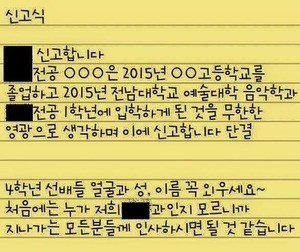 신고식
신고합니다
전공 ○○○은 2015년 ○○고등학교를
졸업하고 2015년 전남대학교 예술대학 음악학과
전공 1학년에 입학하게 된 것을 무한한
영광으로 생각하며 이에 신고합니다 단결
4학년 선배들 얼굴과 성, 이름 꼭 외우세요~
처음에는 누가 저희 과인지 모르니까
지나가는 모든분들께 인사하시면 될 것 같습니다